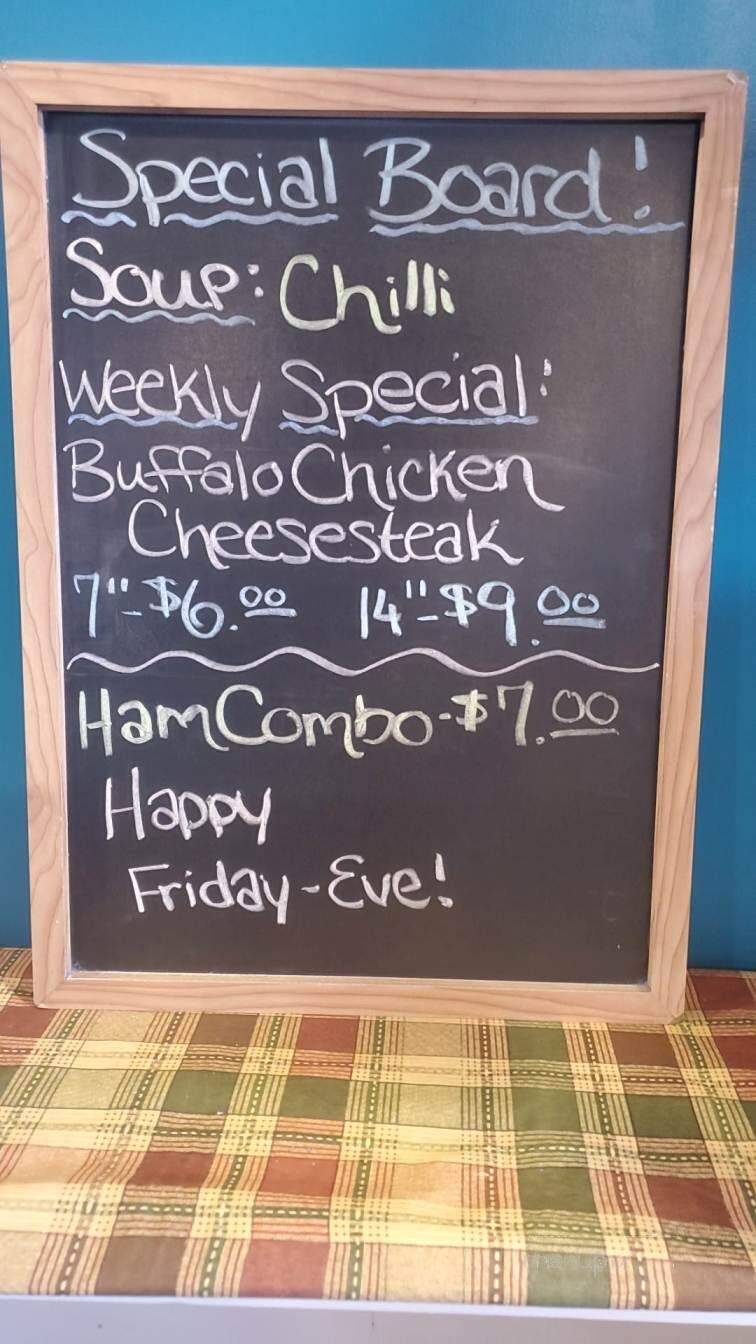 Special Board!
Soup: Chilli
Weekly Special:
Buffalo Chicken
Cheesesteak
7"-$6.00 14"-$9.00
Ham Combo-$7.00
Happy
Friday-Eve!